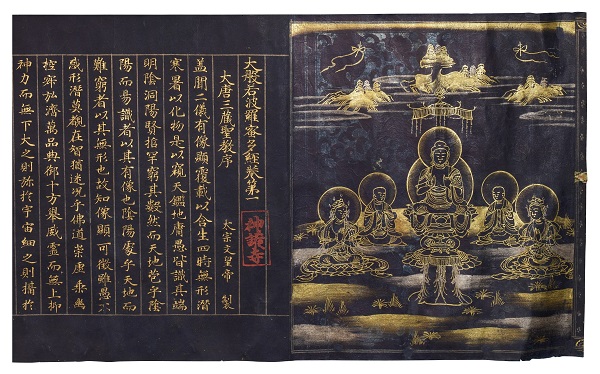 大般若波羅蜜多經卷第一
神護寺
大唐三藏聖教序 太宗文皇帝 製
蓋聞二儀有像顯覆載以含生四時無形潛
寒暑以化物是以窺天鑑地庸愚皆識其端
明陰洞陽賢哲罕窮其數然而天地苞乎陰
陽而易識者以其有像也陰陽處乎天地而
難窮者以其無形也故知像顯可徵雖愚不
惑形潛莫覩在智猶迷況乎佛道崇虛乘幽
控寂弘濟萬品典御十方舉威靈而無上抑
神力而無下大之則弥於宇宙細之則攝於